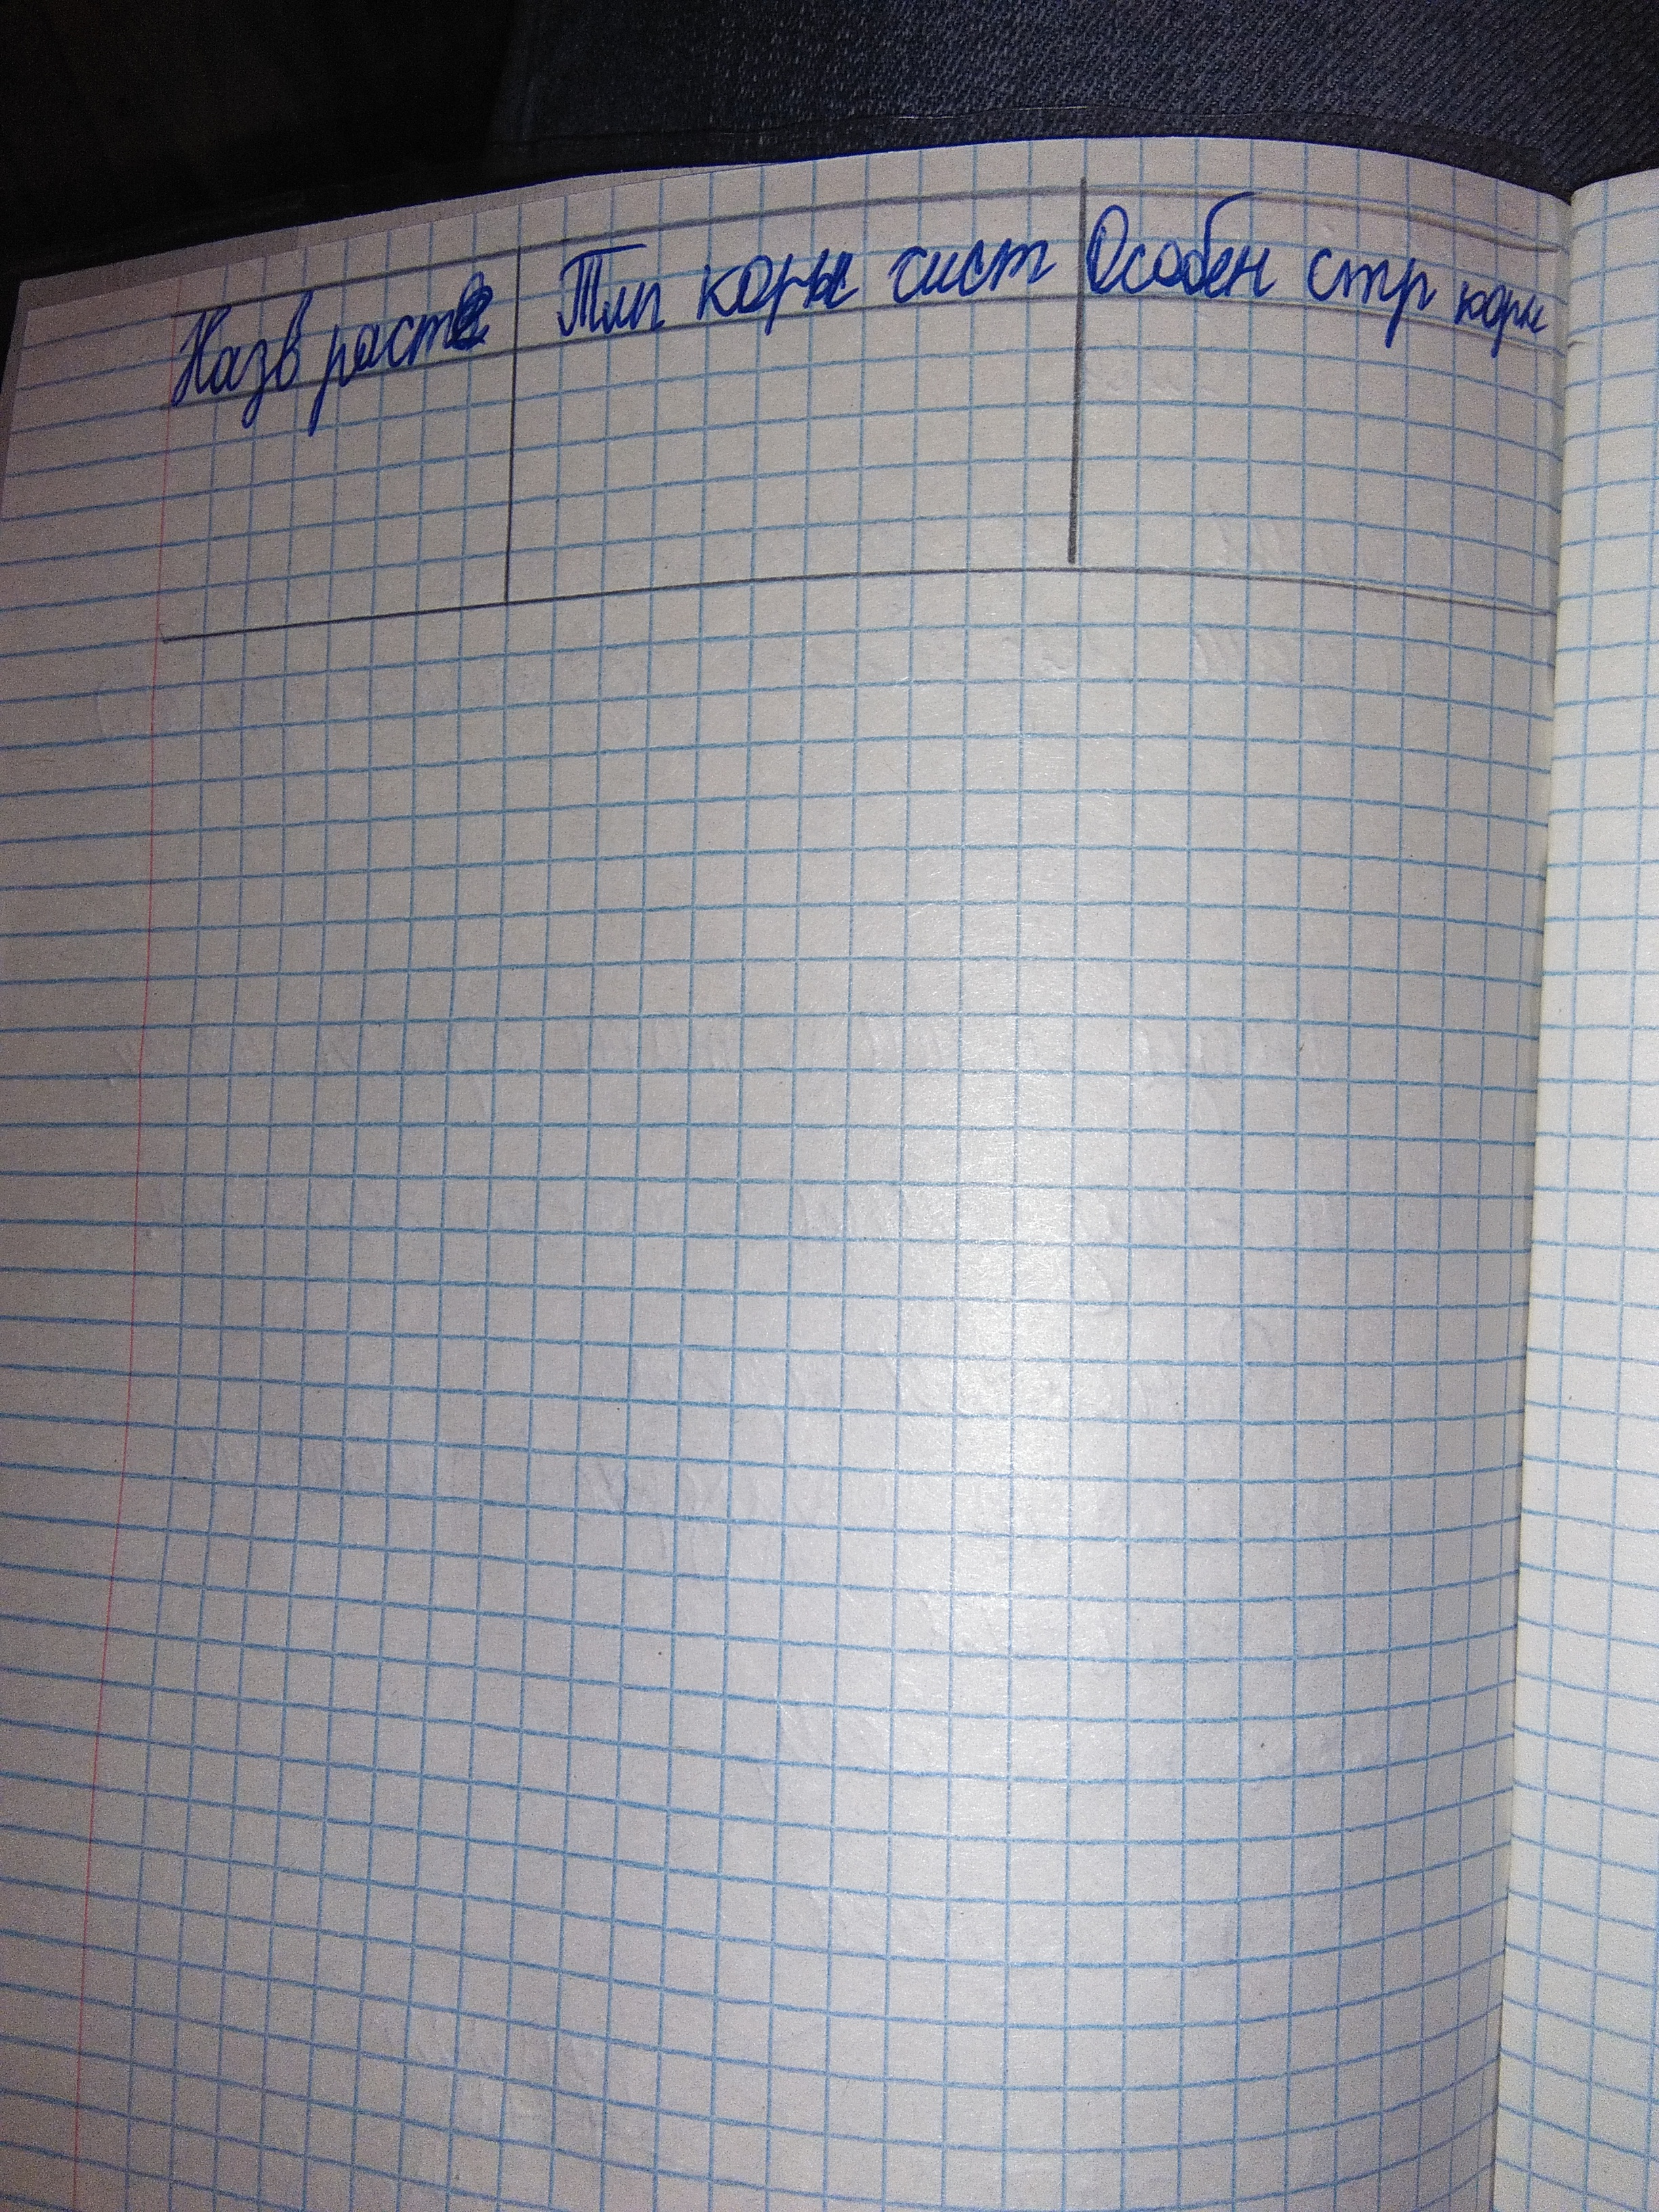 Назв раст Тип корн сист Особен стр корн